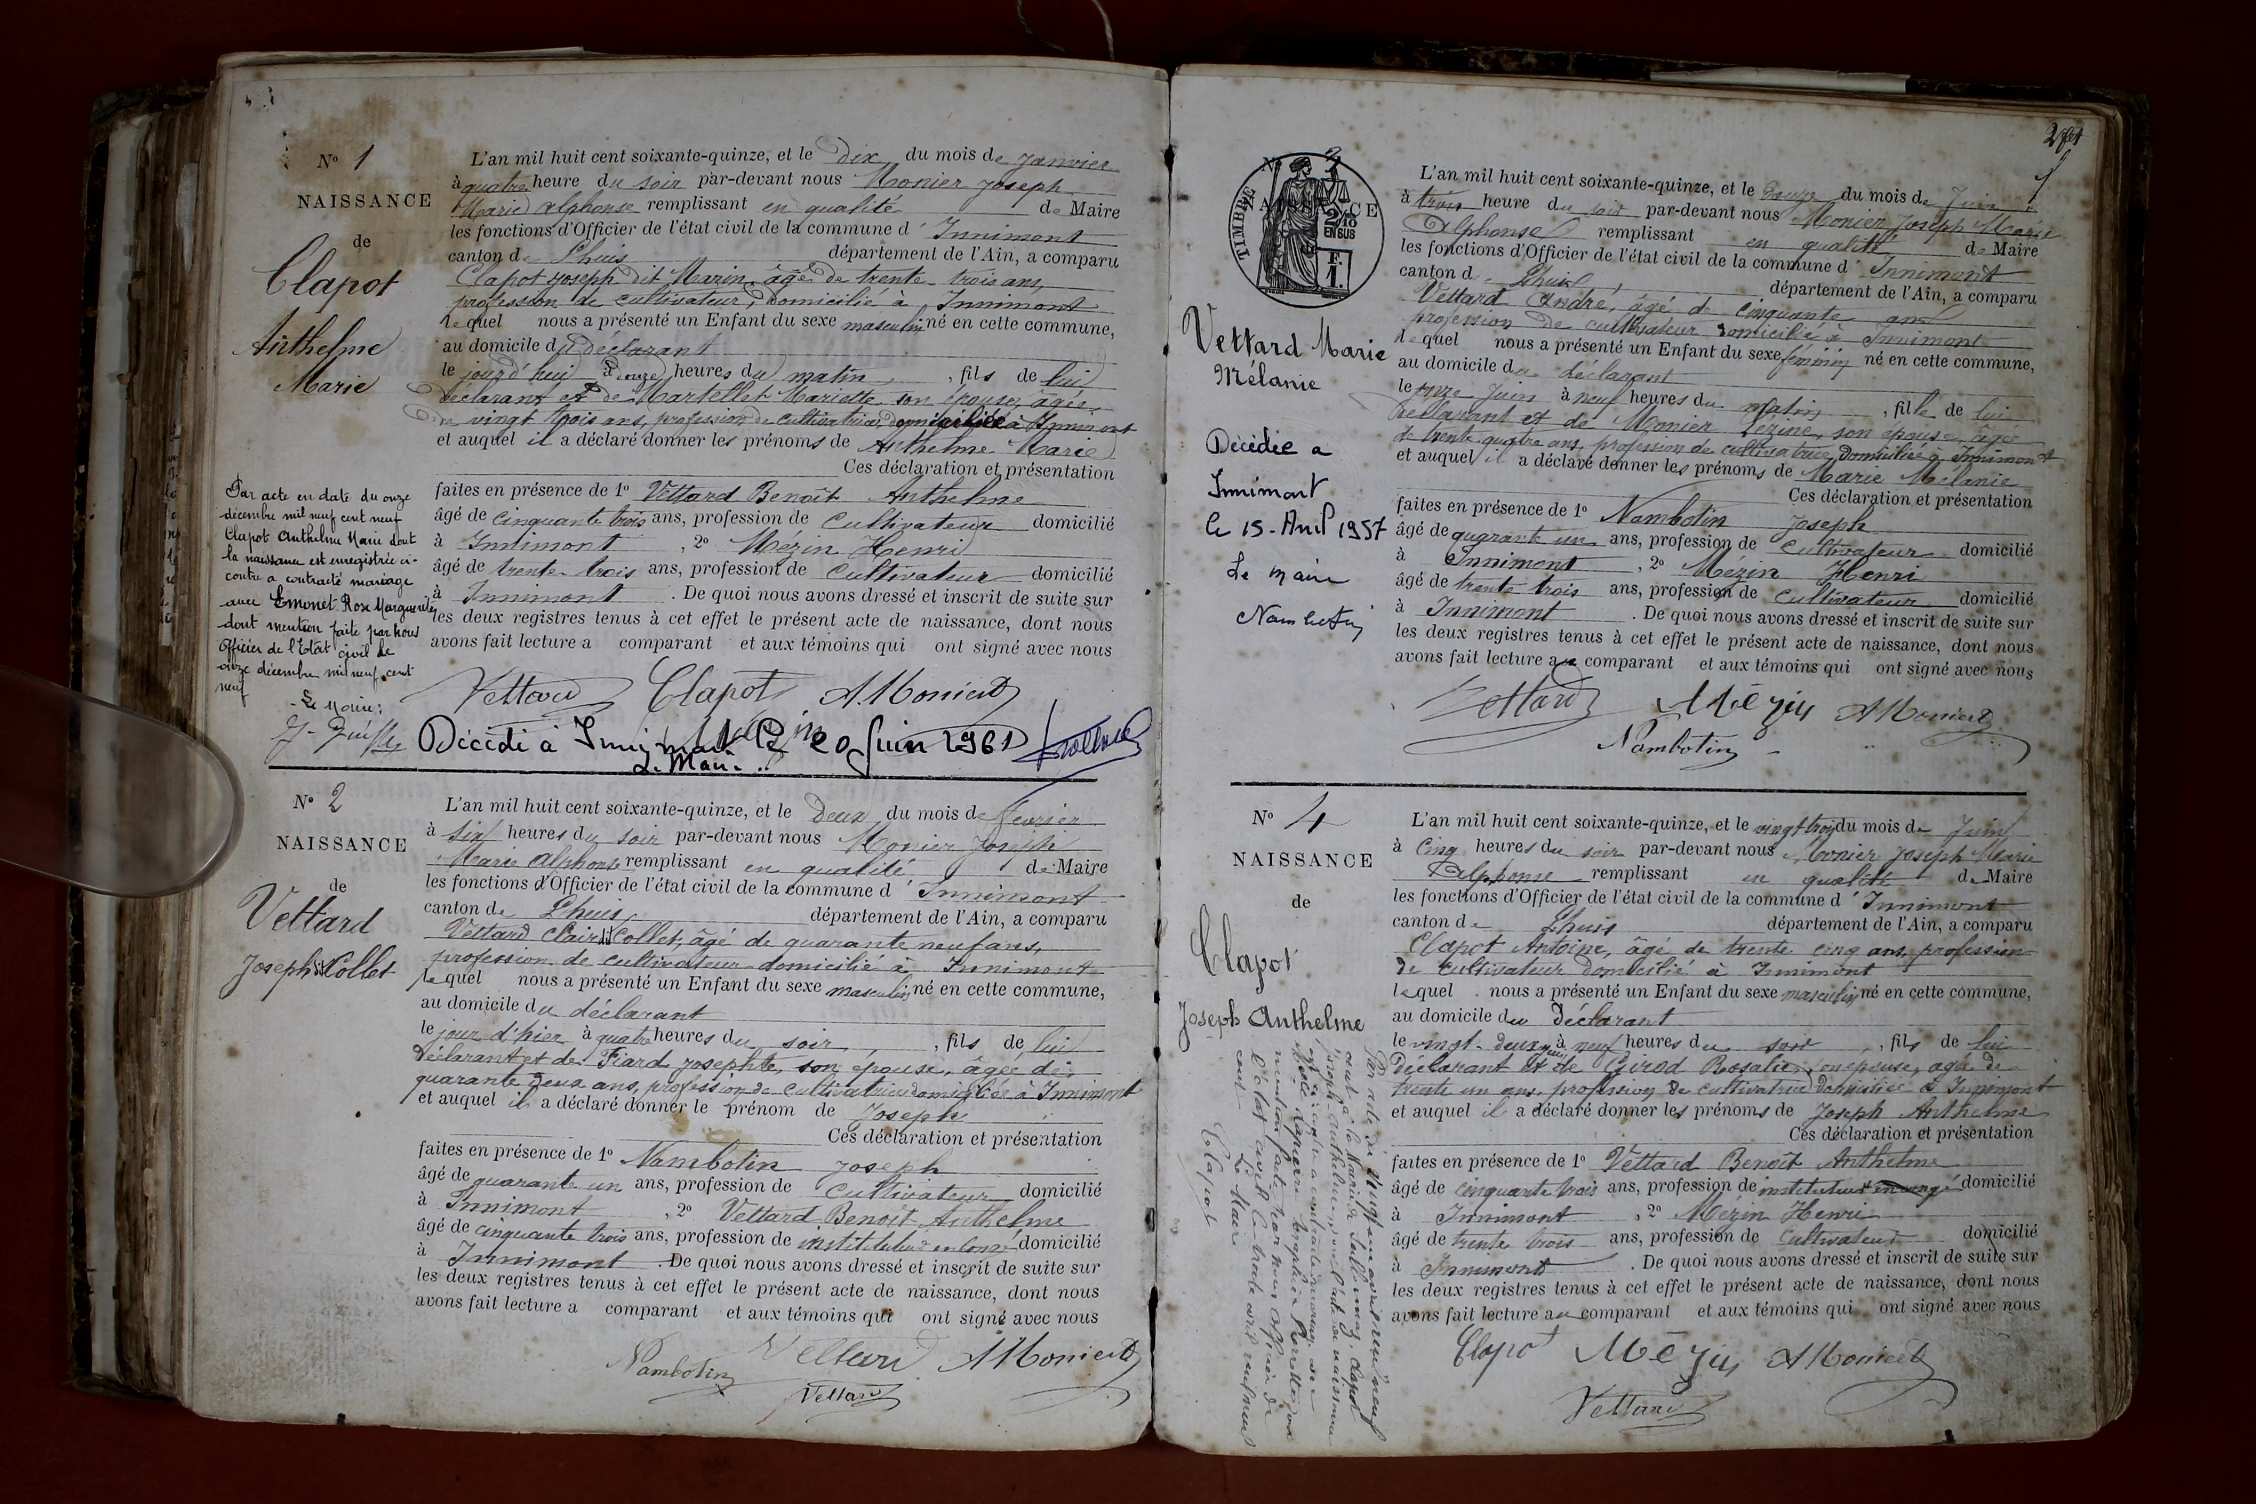 N° 1
NAISSANCE
de
Clapot
Anthelme
Marie
L'an mil huit cent soixante-quinze, et le Dix du mois de Janvier
à quatre heure du soir par-devant nous Monier Joseph
Marie Alphonse remplissant en qualité de Maire
les fonctions d'Officier de l'état civil de la commune d' Innimont
canton de Lhuis département de l'Ain, a comparu
Clapot Joseph dit Marin, âgé de trente trois ans,
profession de cultivateur, domicilié à Innimont
lequel nous a présenté un Enfant du sexe masculin né en cette commune,
au domicile du déclarant
le jourd'hui à onze heures du matin, fils de lui
déclarant et de Martellet Mariette son épouse, âgée
de vingt trois ans, profession de cultivatrice, domiciliée à Innimont
et auquel il a déclaré donner les prénoms de Anthelme Marie
Ces déclaration et présentation
faites en présence de 1° Vettard Benoît Anthelme
âgé de cinquante trois ans, profession de cultivateur domicilié
à Innimont, 2° Mézin Henri
âgé de trente trois ans, profession de cultivateur domicilié
à Innimont. De quoi nous avons dressé et inscrit de suite sur
les deux registres tenus à cet effet le présent acte de naissance, dont nous
avons fait lecture a comparant et aux témoins qui ont signé avec nous
Vettard Clapot A. Monier
Mézin
Par acte en date du onze
décembre mil neuf cent neuf
Clapot Anthelme Marie dont
la naissance est enregistrée ci-
contre a contracté mariage
avec Emonet Rose Marguerite
dont mention faite par nous
Officier de l'Etat civil le
onze décembre mil neuf cent
neuf
Le Maire:
Décédé à Innimont le 20 Juin 1961
Le Maire
N° 2
NAISSANCE
de
Vettard
Joseph dit Collet
L'an mil huit cent soixante-quinze, et le Deux du mois de février
à six heures du soir par-devant nous Monier Joseph
Marie Alphonse remplissant en qualité de Maire
les fonctions d'Officier de l'état civil de la commune d' Innimont
canton de Lhuis département de l'Ain, a comparu
Vettard Clair dit Collet, âgé de quarante neuf ans,
profession de cultivateur domicilié à Innimont
lequel nous a présenté un Enfant du sexe masculin né en cette commune,
au domicile du déclarant
le jour d'hier à quatre heures du soir, fils de lui
déclarant et de Fiard Josephte, son épouse, âgée de
quarante deux ans, profession de cultivatrice domiciliée à Innimont
et auquel il a déclaré donner le prénom de Joseph
Ces déclaration et présentation
faites en présence de 1° Nambotin Joseph
âgé de quarante un ans, profession de cultivateur domicilié
à Innimont, 2° Vettard Benoît Anthelme
âgé de cinquante trois ans, profession de instituteur en congé domicilié
à Innimont. De quoi nous avons dressé et inscrit de suite sur
les deux registres tenus à cet effet le présent acte de naissance, dont nous
avons fait lecture a comparant et aux témoins qui ont signé avec nous
Nambotin Vettard A Monier
Vettard
N° 3
TIMBRE
2/10
EN SUS
F.
1.
Vettard Marie
Mélanie
Décédée a
Innimont
le 15 Avril 1957
Le maire
Nambotin
L'an mil huit cent soixante-quinze, et le Douze du mois de Juin
à trois heure du soir par-devant nous Monier Joseph Marie
Alphonse remplissant en qualité de Maire
les fonctions d'Officier de l'état civil de la commune d' Innimont
canton d Lhuis, département de l'Ain, a comparu
Vettard André, âgé de cinquante ans
profession de cultivateur domicilié à Innimont
lequel nous a présenté un Enfant du sexe féminin né en cette commune,
au domicile du déclarant
le onze Juin à neuf heures du matin, fille de lui
déclarant et de Monier Lézine, son épouse, âgée
de trente quatre ans, profession de cultivatrice, domiciliée à Innimont
et auquel il a déclaré donner les prénoms de Marie Mélanie
Ces déclaration et présentation
faites en présence de 1° Nambotin Joseph
âgé de quarante un ans, profession de cultivateur domicilié
à Innimont, 2° Mezin Henri
âgé de trente trois ans, profession de cultivateur domicilié
à Innimont. De quoi nous avons dressé et inscrit de suite sur
les deux registres tenus à cet effet le présent acte de naissance, dont nous
avons fait lecture au comparant et aux témoins qui ont signé avec nous
Vettard Mézin A Monier
Nambotin
N° 4
NAISSANCE
de
Clapot
Joseph Anthelme
L'an mil huit cent soixante-quinze, et le vingt trois du mois de Juin
à cinq heures du soir par-devant nous Monier Joseph Marie
Alphonse remplissant en qualité de Maire
les fonctions d'Officier de l'état civil de la commune d' Innimont
canton de Lhuis département de l'Ain, a comparu
Clapot Antoine, âgé de trente cinq ans, profession
de cultivateur domicilié à Innimont
lequel nous a présenté un Enfant du sexe masculin né en cette commune,
au domicile du déclarant
le vingt-deux à neuf heures du soir, fils de lui
déclarant et de Girod Rosalie, son épouse, agée de
trente un ans, profession de cultivatrice domiciliée à Innimont
et auquel il a déclaré donner les prénoms de Joseph Anthelme
Ces déclaration et présentation
faites en présence de 1° Vettard Benoît Anthelme
âgé de cinquante trois ans, profession de instituteur en congé domicilié
à Innimont, 2° Mézin Henri
âgé de trente trois ans, profession de cultivateur domicilié
à Innimont. De quoi nous avons dressé et inscrit de suite sur
les deux registres tenus à cet effet le présent acte de naissance, dont nous
avons fait lecture au comparant et aux témoins qui ont signé avec nous
Clapot Mézin A Monier
Vettard
mention faite par nous Officier de
l'état civil
Le Maire
Clapot